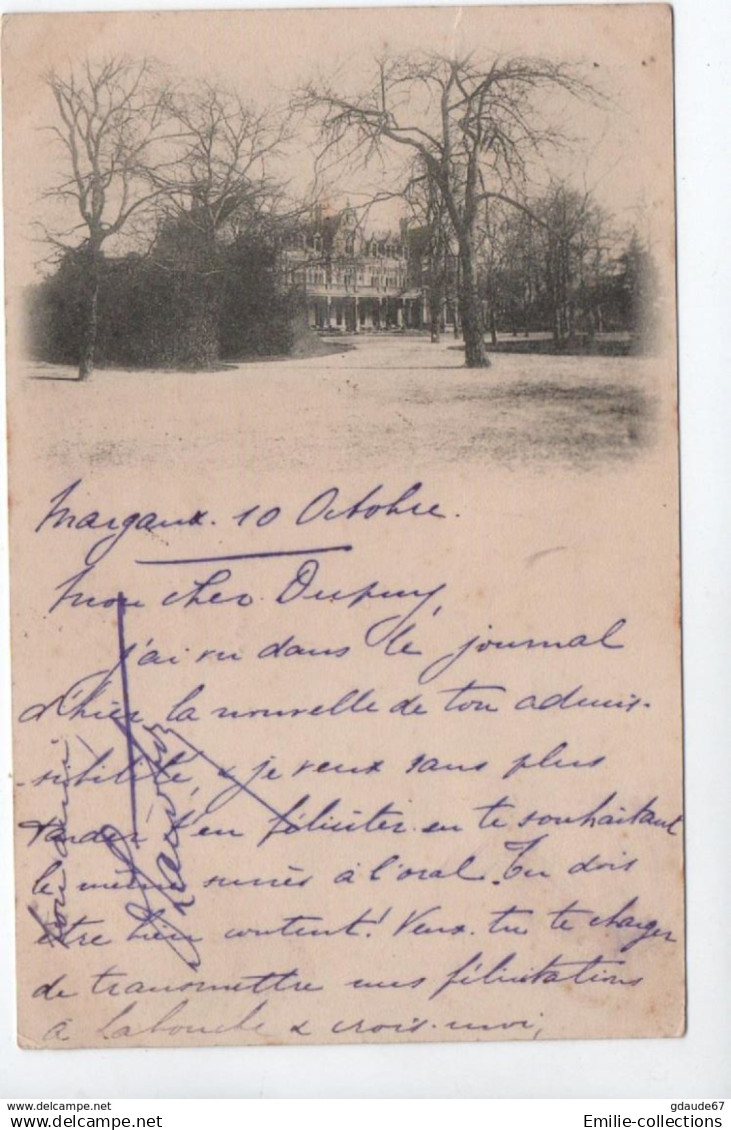 Margaux. 10 Octobre.
Mon cher Dupuy,
j'ai vu dans le journal
d'hier la nouvelle de ton admis-
-sibilité, & je veux sans plus
tarder t'en féliciter en te souhaitant
le même succès à l'oral. Tu dois
être bien content! Veux-tu te charger
de transmettre mes félicitations
à Labouche & crois-moi,
ton ami
gdaude67
Emilie-collections